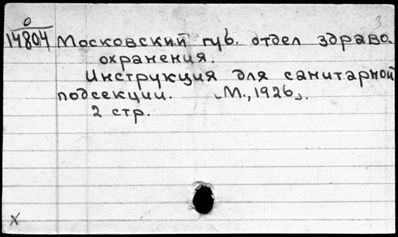 0
14804 Московский губ. отдел здраво
охранения.
Инструкция для санитарной
подсекции. [М., 1926].
2 стр.
3
X